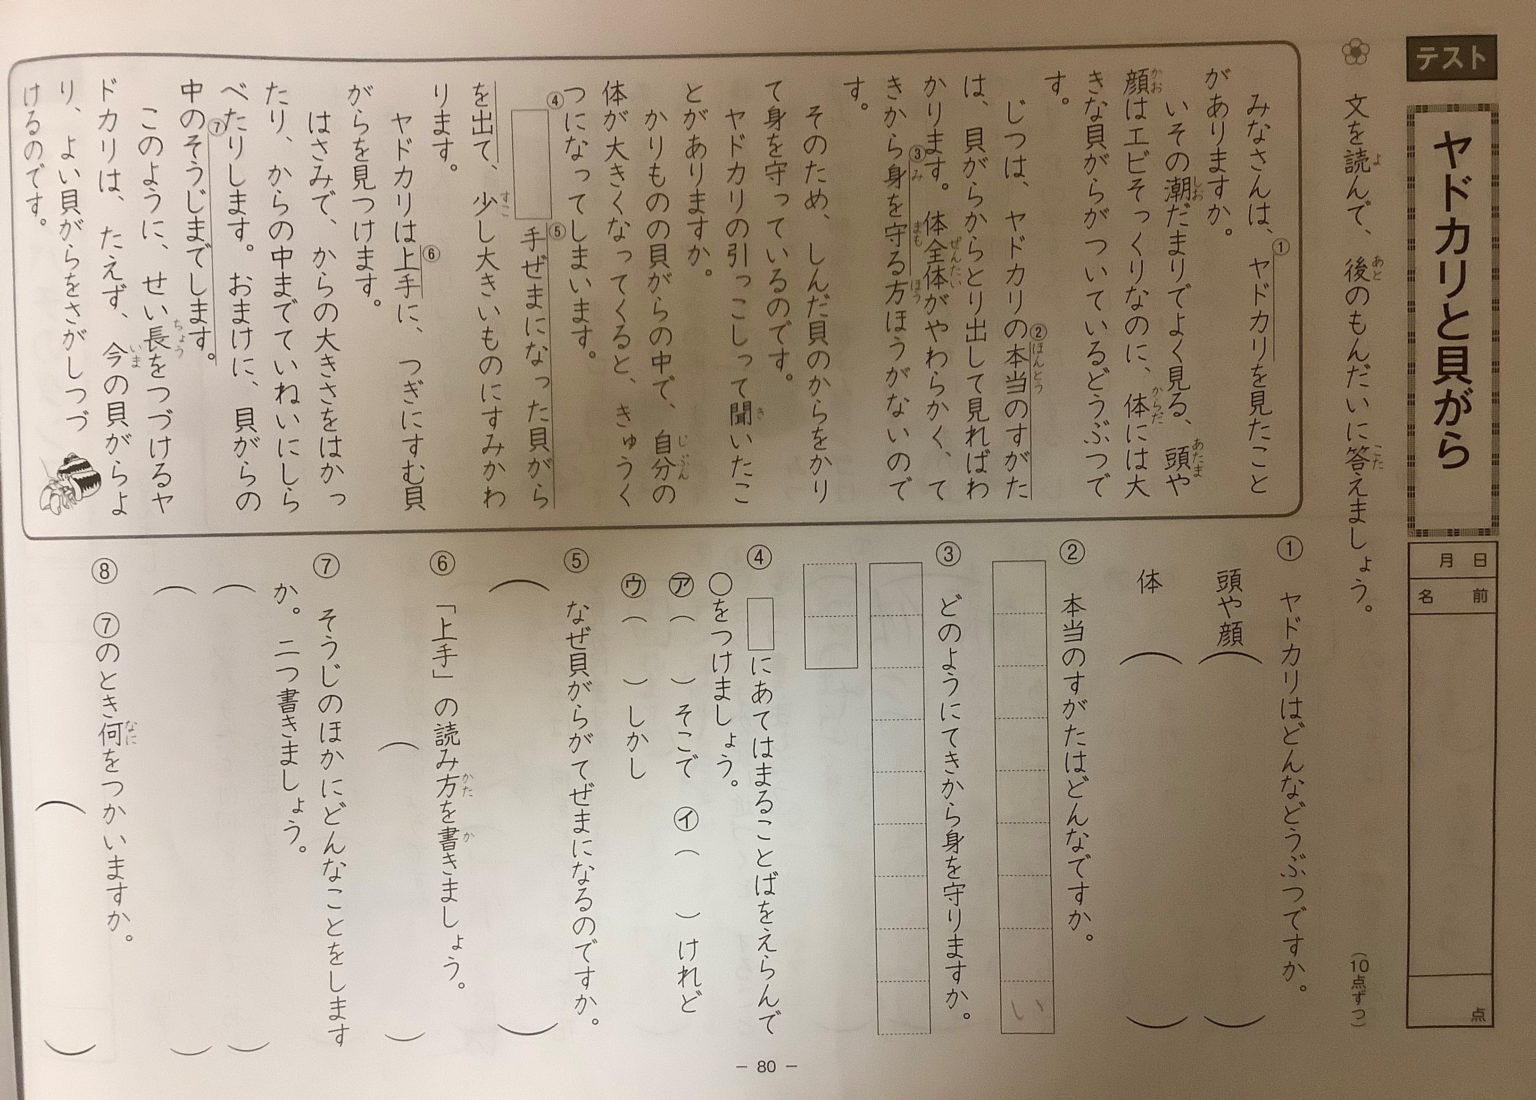 テスト
ヤドカリと貝がら
月 日
名 前
点
文を読んで、後のもんだいに答えましょう。
よ あと こた
(10点ずつ)
みなさんは、ヤドカリを見たこと
①
がありますか。
いその潮だまりでよく見る、頭や
しお あたま
顔はエビそっくりなのに、体には大
かお からだ
きな貝がらがついているどうぶつで
す。
じつは、ヤドカリの本当のすがた
② ほんとう
は、貝がらからとり出して見ればわ
かります。体全体がやわらかく、て
ぜんたい
きから身を守る方ほうがないので
③ み まも ほう
す。
そのため、しんだ貝のからをかり
て身を守っているのです。
ヤドカリの引っこしって聞いたこ
き
とがありますか。
かりものの貝がらの中で、自分の
じぶん
体が大きくなってくると、きゅうく
つになってしまいます。
④
手ぜまになった貝がら
⑤
を出て、少し大きいものにすみかわ
すこ
ります。
ヤドカリは上手に、つぎにすむ貝
⑥
がらを見つけます。
はさみで、からの大きさをはかっ
たり、からの中までていねいにしら
べたりします。おまけに、貝がらの
中のそうじまでします。
⑦
このように、せい長をつづけるヤ
ちょう
ドカリは、たえず、今の貝がらよ
いま
り、よい貝がらをさがしつづ
けるのです。
① ヤドカリはどんなどうぶつですか。
頭や顔 ( )
体 ( )
② 本当のすがたはどんなですか。
い
③ どのようにてきから身を守りますか。
④ □にあてはまることばをえらんで
○をつけましょう。
㋐( )そこで ㋑( )けれど
㋒( )しかし
⑤ なぜ貝がらがてぜまになるのですか。
( )
⑥ 「上手」の読み方を書きましょう。
かた か
( )
⑦ そうじのほかにどんなことをします
か。二つ書きましょう。
( )
( )
⑧ ⑦のとき何をつかいますか。
なに
( )
― 80 ―